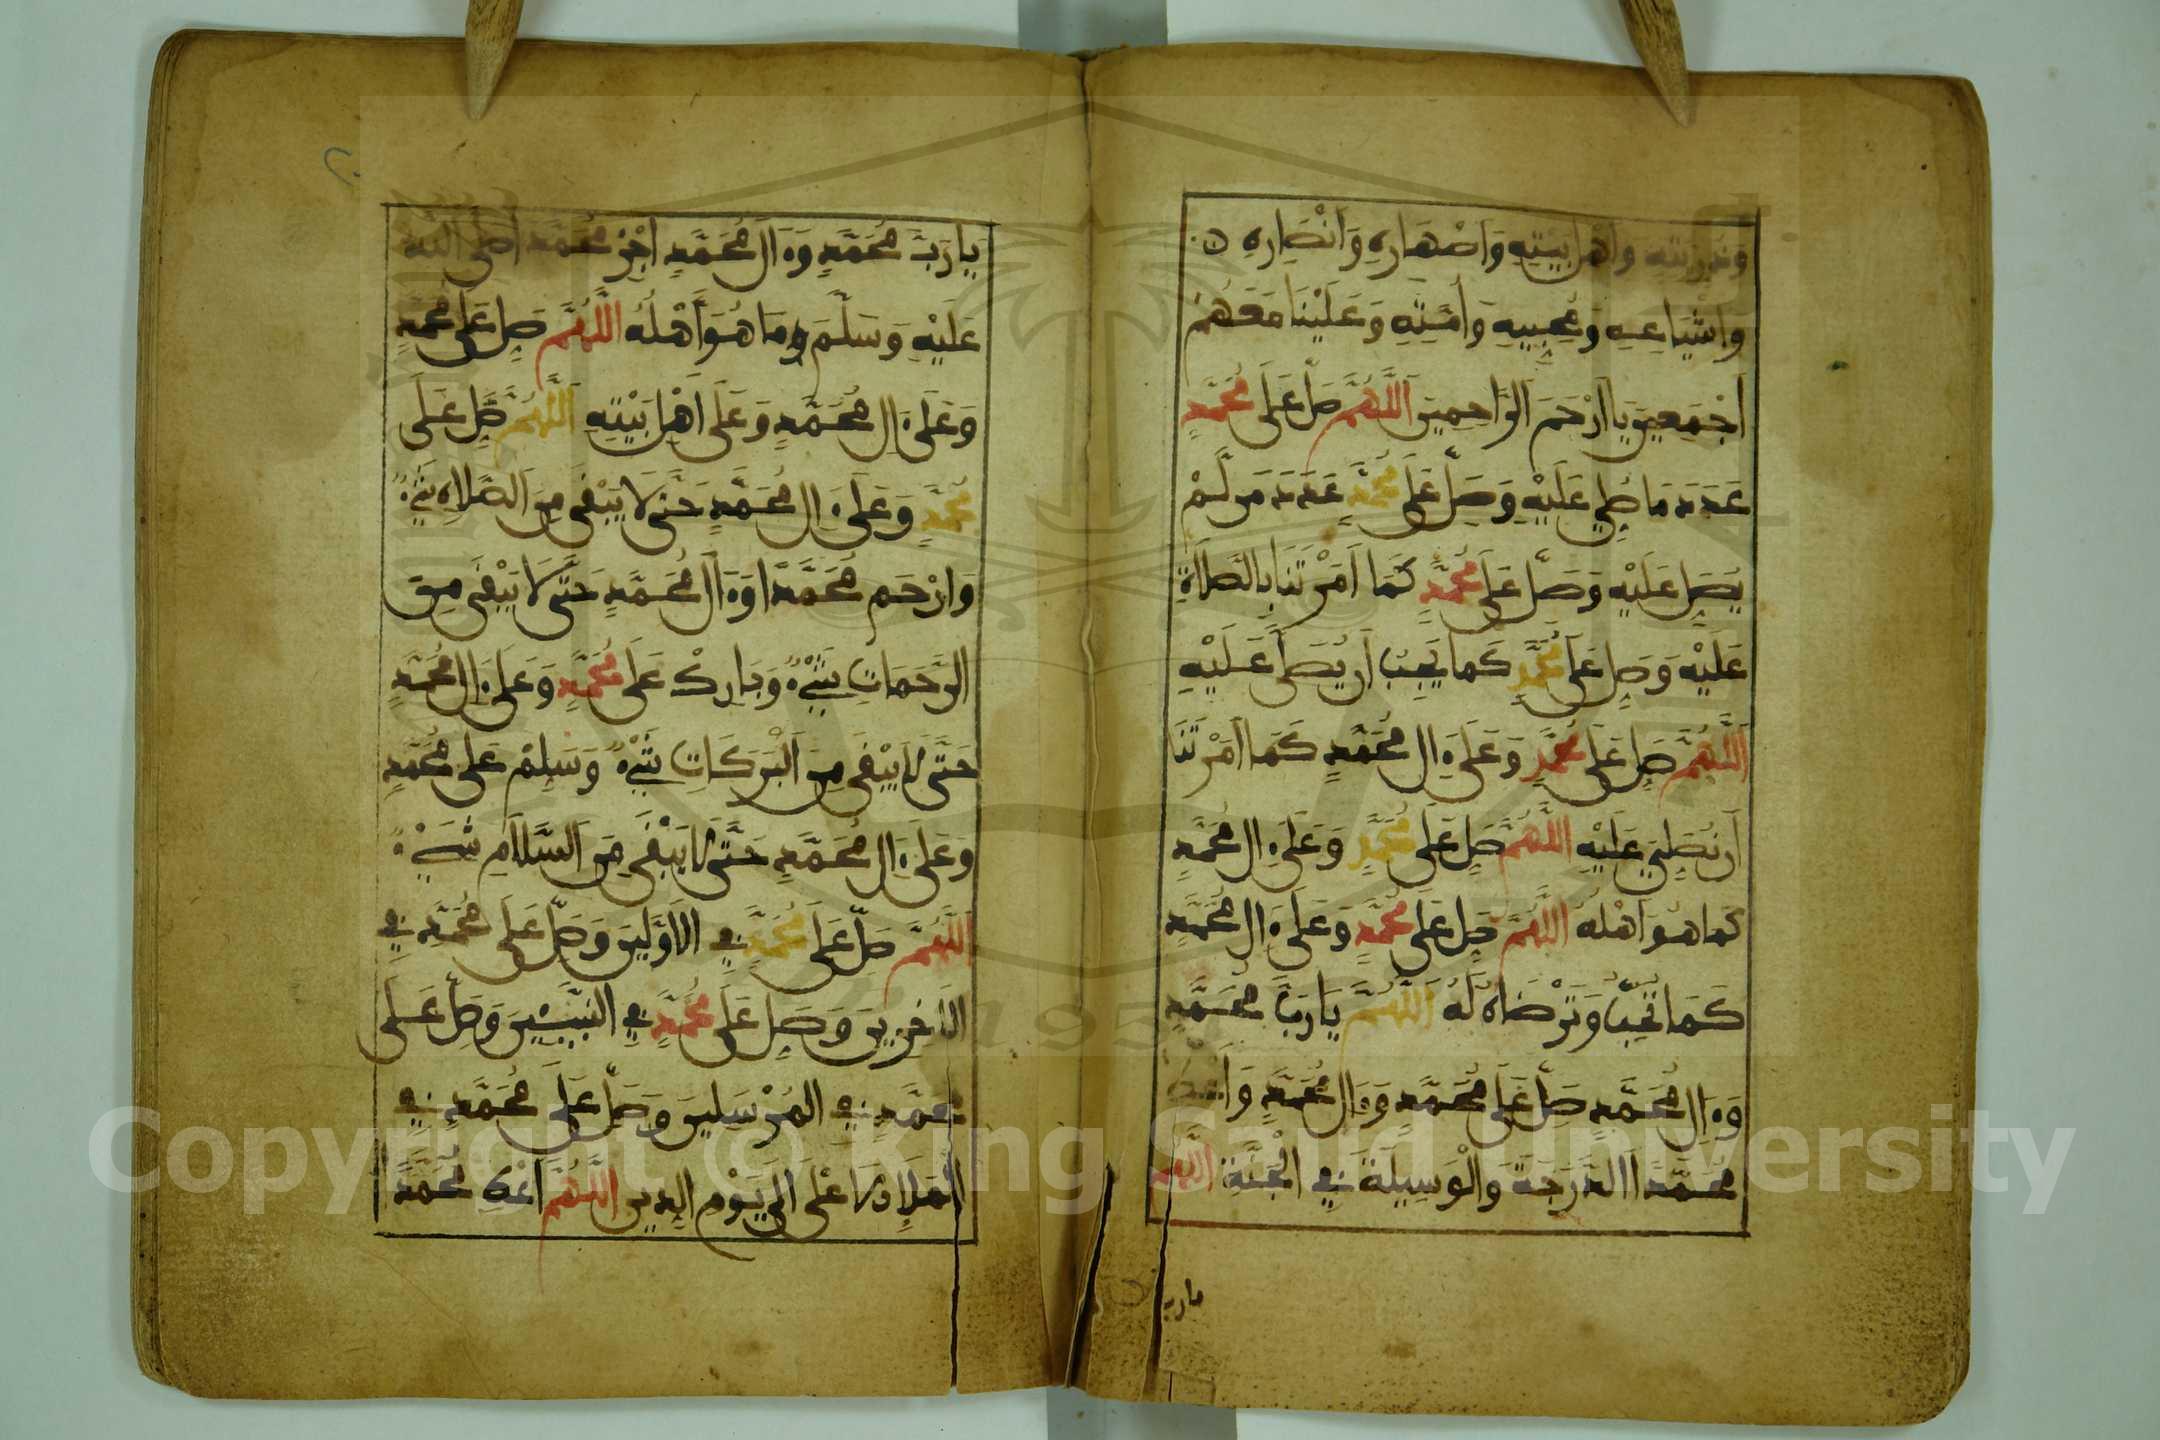 وذريته واهل بيته واصهاره وانصاره
واشياعه ومحبيه وأمته وعلينا معهم
أجمعين يا أرحم الراحمين اللهم صل على محمد
عدد ما صلي عليه وصل على محمد عدد من لم
يصل عليه وصل على محمد كما أمرتنا بالصلاة
عليه وصل على محمد كما يحب أن يصلى عليه
اللهم صل على محمد وعلى ءال محمد كما أمرتنا
أن نصلي عليه اللهم صل على محمد وعلى ءال محمد
كما هو أهله اللهم صل على محمد وعلى ءال محمد
كما تحب وترضاه له اللهم يا رب محمد
وءال محمد صل على محمد وءال محمد وأعط
محمدا الدرجة والوسيلة في الجنة اللهم
يارب
يا رب محمد وءال محمد اجز محمدا صلى الله
عليه وسلم ما هو أهله اللهم صل على محمد
وعلى ءال محمد وعلى أهل بيته اللهم صل على
محمد وعلى ءال محمد حتى لا يبقى من الصلاة شيء
وارحم محمدا وءال محمد حتى لا يبقى من
الرحمات شيء وبارك على محمد وعلى ءال محمد
حتى لا يبقى من البركات شيء وسلم على محمد
وعلى ءال محمد حتى لا يبقى من السلام شيء
اللهم صل على محمد في الأولين وصل على محمد في
الآخرين وصل على محمد في النبيين وصل على
محمد في المرسلين وصل على محمد في
الملإ الأعلى الى يوم الدين اللهم أعط محمدا
Copyright © King Saud University